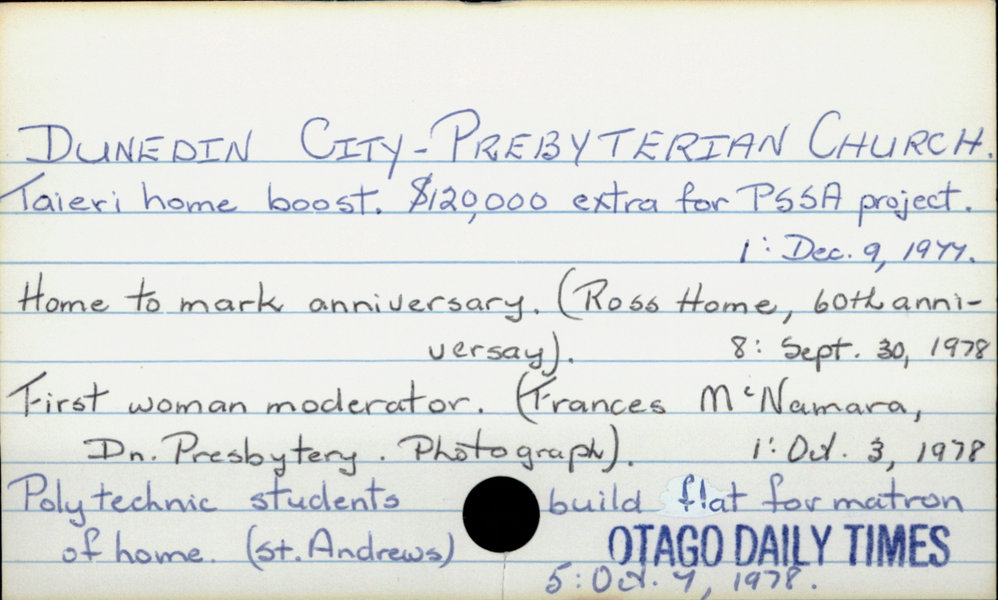 DUNEDIN CITY-PREBYTERIAN CHURCH.
Taieri home boost. $120,000 extra for PSSA project.
1: Dec. 9, 1977.
Home to mark anniversary. (Ross Home, 60th anni-
versay). 8: Sept. 30, 1978
First woman moderator. (Frances McNamara,
Dn. Presbytery. Photograph). 1: Oct. 3, 1978
Polytechnic students build flat for matron
of home. (St. Andrews) OTAGO DAILY TIMES
5: Oct. 7, 1978.